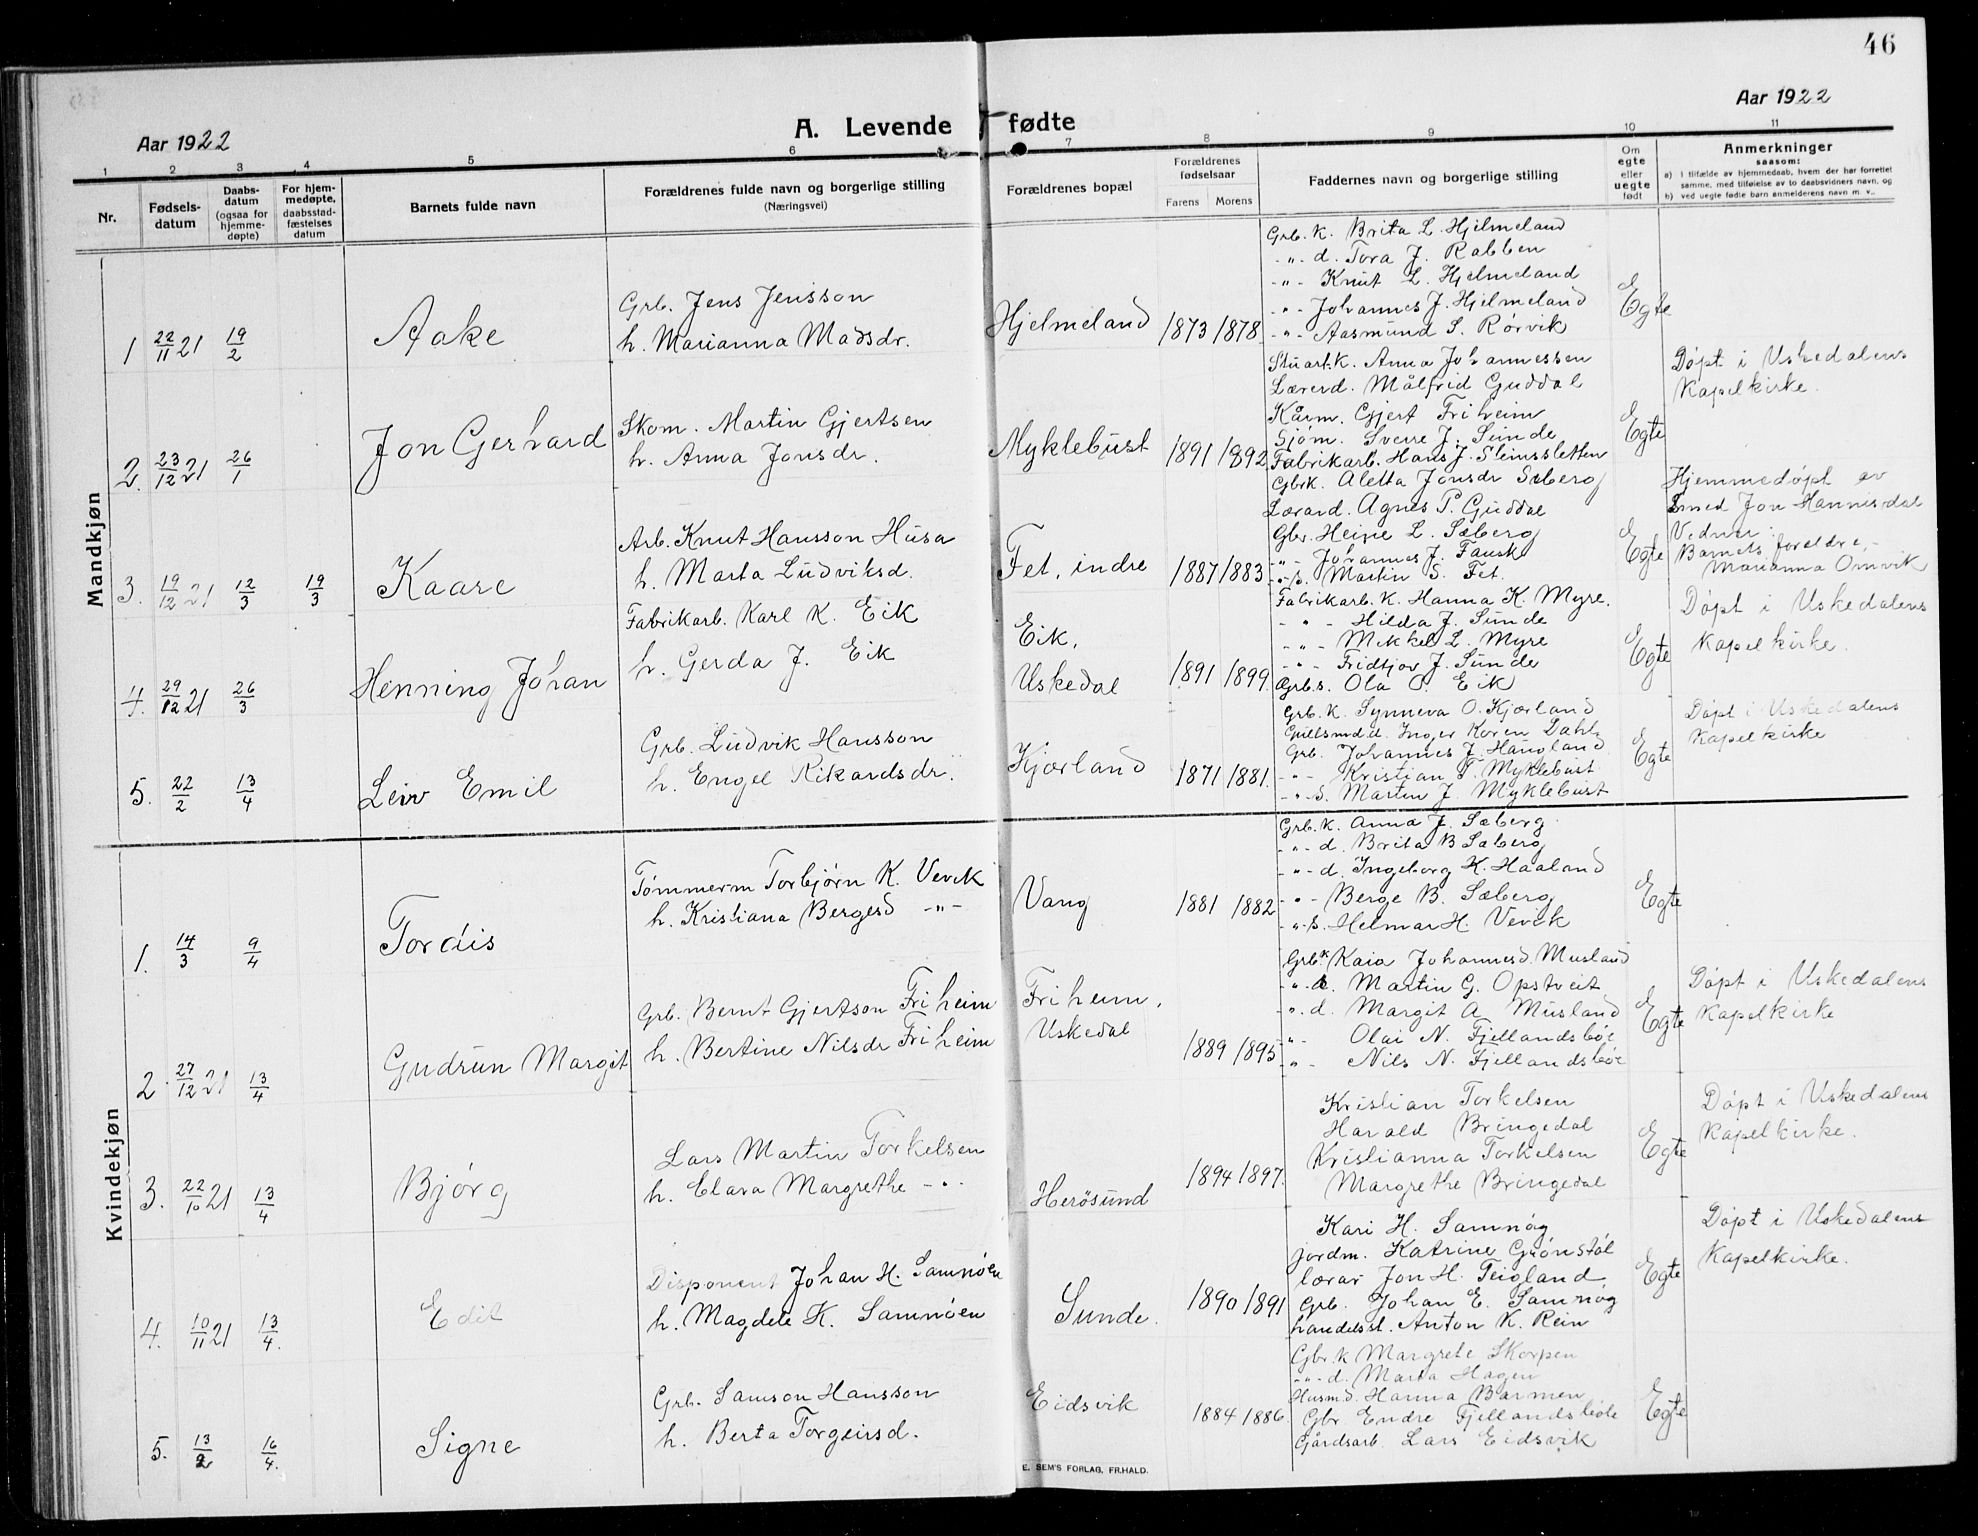 46
Aar 1922
A. Levende fødte
Aar 1922
1 2 3 4 5 6 7 8 9 10 11
Nr.
Fødsels-
datum
Daabs-
datum
(ogsaa for
hjemme-
døpte)
For hjem-
medøpte,
daabsstad-
fæstelses
datum
Barnets fulde navn
Forældrenes fulde navn og borgerlige stilling
(Næringsvei)
Forældrenes bopæl
Forældrenes
fødselsaar
Farens Morens
Faddernes navn og borgerlige stilling
Om
egte
eller
uegte
født
Anmerkninger
saasom:
a) I tilfælde av hjemmedaab, hvem der har forrettet
samme, med tilføielse av to daabsvidners navn, og
b) ved uegte fødte barn anmelderens navn m. v.
Mandkjøn
1 22/11 21 19/2
Aake
Grb. Jens Jensson
h. Marianna Madsdr.
Hjelmeland
1873 1878
Grb. K. Brita L. Hjelmeland
-"- d. Tora J. Rabben
-"- Knut L. Hjelmeland
-"- Johannes J. Hjelmeland
-"- Aasmund S. Rørvik
Egte
2. 23/12 21 26/1
Jon Gerhard
Skom. Martin Gjertsen
h. Anna Jonsdr.
Myklebust
1891 1892
Stuart.k. Anna Johannessen
Lærerd. Målfrid Guddal
Kårm. Gjert Friheim
Sjøm. Sverre J. Sunde
Fabrikarb. Hans J. Steinssletten
Egte
Døpt i Uskedalens
Kapelkirke.
3. 19/12 21 12/3 19/3
Kaare
Arb. Knut Hansson Husa
h. Marta Ludviksd.
Fet, indre
1887 1883
Gbrk. Aletta Jonsdr Sæberg
Lærard. Agnes P. Guddal
Gbr. Heine L. Sæberg
-"- Johannes J. Fausk
-"-s. Martin S. Fet.
Egte
Hjemmedøpt av
Smed Jon Hannisdal
Vedner:
Barnets foreldre,
Marianna Omvik
4. 29/12 21 26/3
Henning Johan
Fabrikarb. Karl K. Eik
h. Gerda J. Eik
Eik,
Uskedal
1891 1899
Fabrikarb. K. Hanna K. Myre.
-"- Hilda J. Sunde
-"- Mikkel L. Myre
-"- Fridtjov J. Sunde
Grb.s. Ola O. Eik
Egte
Døpt i Uskedalens
Kapelkirke.
5. 22/2 13/4
Leiv Emil
Grb. Ludvik Hansson
h. Engel Rikardsdr.
Kjærland
1871 1881.
Grb. K. Synneva O. Kjærland
Gullsmd.d. Inger Koren Dahl
Grb. Johannes J. Haugland
-"- Kristian T. Myklebust
-"-s. Martin J. Myklebust
Egte
Døpt i Uskedalens
Kapelkirke
Kvindekjøn
1. 14/3 9/4
Tordis
Tømmerm Torbjørn K. Vevik
h. Kristiana Bergesd -"-
Vang
1881 1882
Grb. K. Anna J. Sæberg.
-"- d. Brita B Sæberg
-"- d. Ingeborg K. Haaland
-"- Berge B. Sæberg
-"-s. Helmar H. Vevik
Egte
2 27/12 21 13/4
Gudrun Margit
Grb. Bernt Gjertson Friheim
h. Bertine Nilsdr Friheim
Friheim,
Uskedal
1889 1895
Grbk Kaia Johannesd. Musland
-"- Martin G. Opstveit
-"- d. Margit A Musland
-"- Olai N. Fjellandsbøe
-"- Nils N. Fjellandsbøe
Egte
Døpt i Uskedalens
Kapelkirke
3. 22/10 21 13/4
Bjørg
Lars Martin Torkelsen
h. Clara Margrethe -"-
Herøsund
1894 1897.
Kristian Torkelsen
Harald Bringedal
Kristianna Torkelsen
Margrethe Bringedal
Egte
Døpt i Uskedalens
Kapelkirke.
4. 10/11 21 13/4.
Edit
Disponent Johan H. Samnøen
h. Magdele K. Samnøen
Sunde.
1890 1891
Kari H. Samnøg
jordm. Katrine Grønstøl
lærar Jon H. Teigland
Grb. Johan E. Samnøg
handelsst. Anton K. Rein
Egte
Døpt i Uskedalens
Kapelkirke.
5. 13/2 16/4.
Signe
Grb. Samson Hansson
h. Berta Torgeirsd.
Eidsvik
1884 1886.
Gbr.k Margrete Skorpen
-"-d. Marta Hagen
Husm.d. Hanna Barmen
Gbr. Endre Fjellandsbøle
Gårdsarb. Lars Eidsvik
Egte
E. SEM'S FORLAG, FR.HALD.